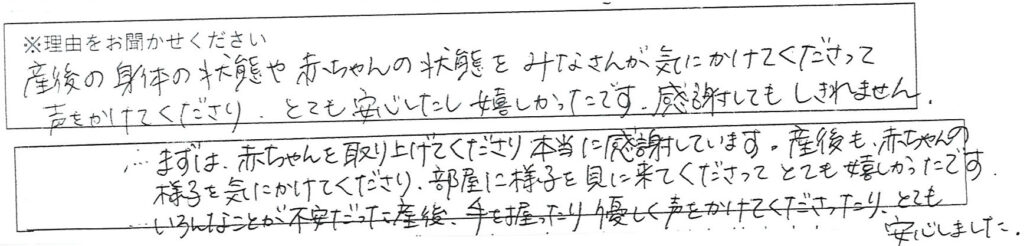 ※理由をお聞かせください
産後の身体の状態や赤ちゃんの状態をみなさんが気にかけてくださって
声をかけてくださり、とても安心したし嬉しかったです。感謝してもしきれません。
まずは、赤ちゃんを取り上げてくださり本当に感謝しています。産後も、赤ちゃんの
様子を気にかけてくださり、部屋に様子を見に来てくださってとても嬉しかったです。
いろんなことが不安だった産後、手を握ったり優しく声をかけてくださったり、とても
安心しました。